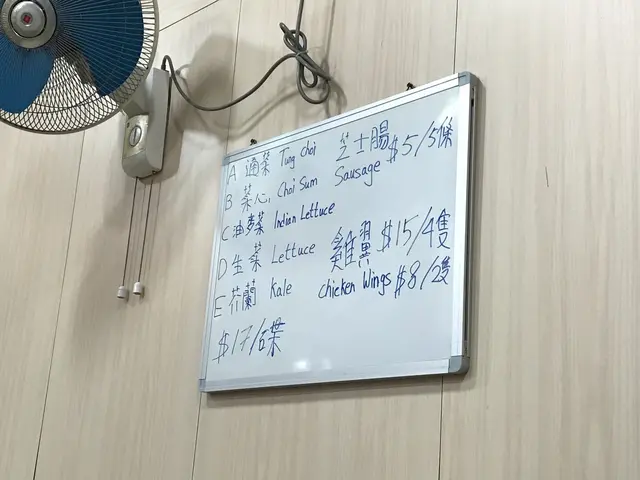 A 通菜 Tung Choi
B 菜心 Choi Sum
C 油麥菜 Indian Lettuce
D 生菜 Lettuce
E 芥蘭 Kale
$17/碟
芝士腸 $5/5條
Sausage
雞翼 $15/4隻
chicken Wings $8/2隻